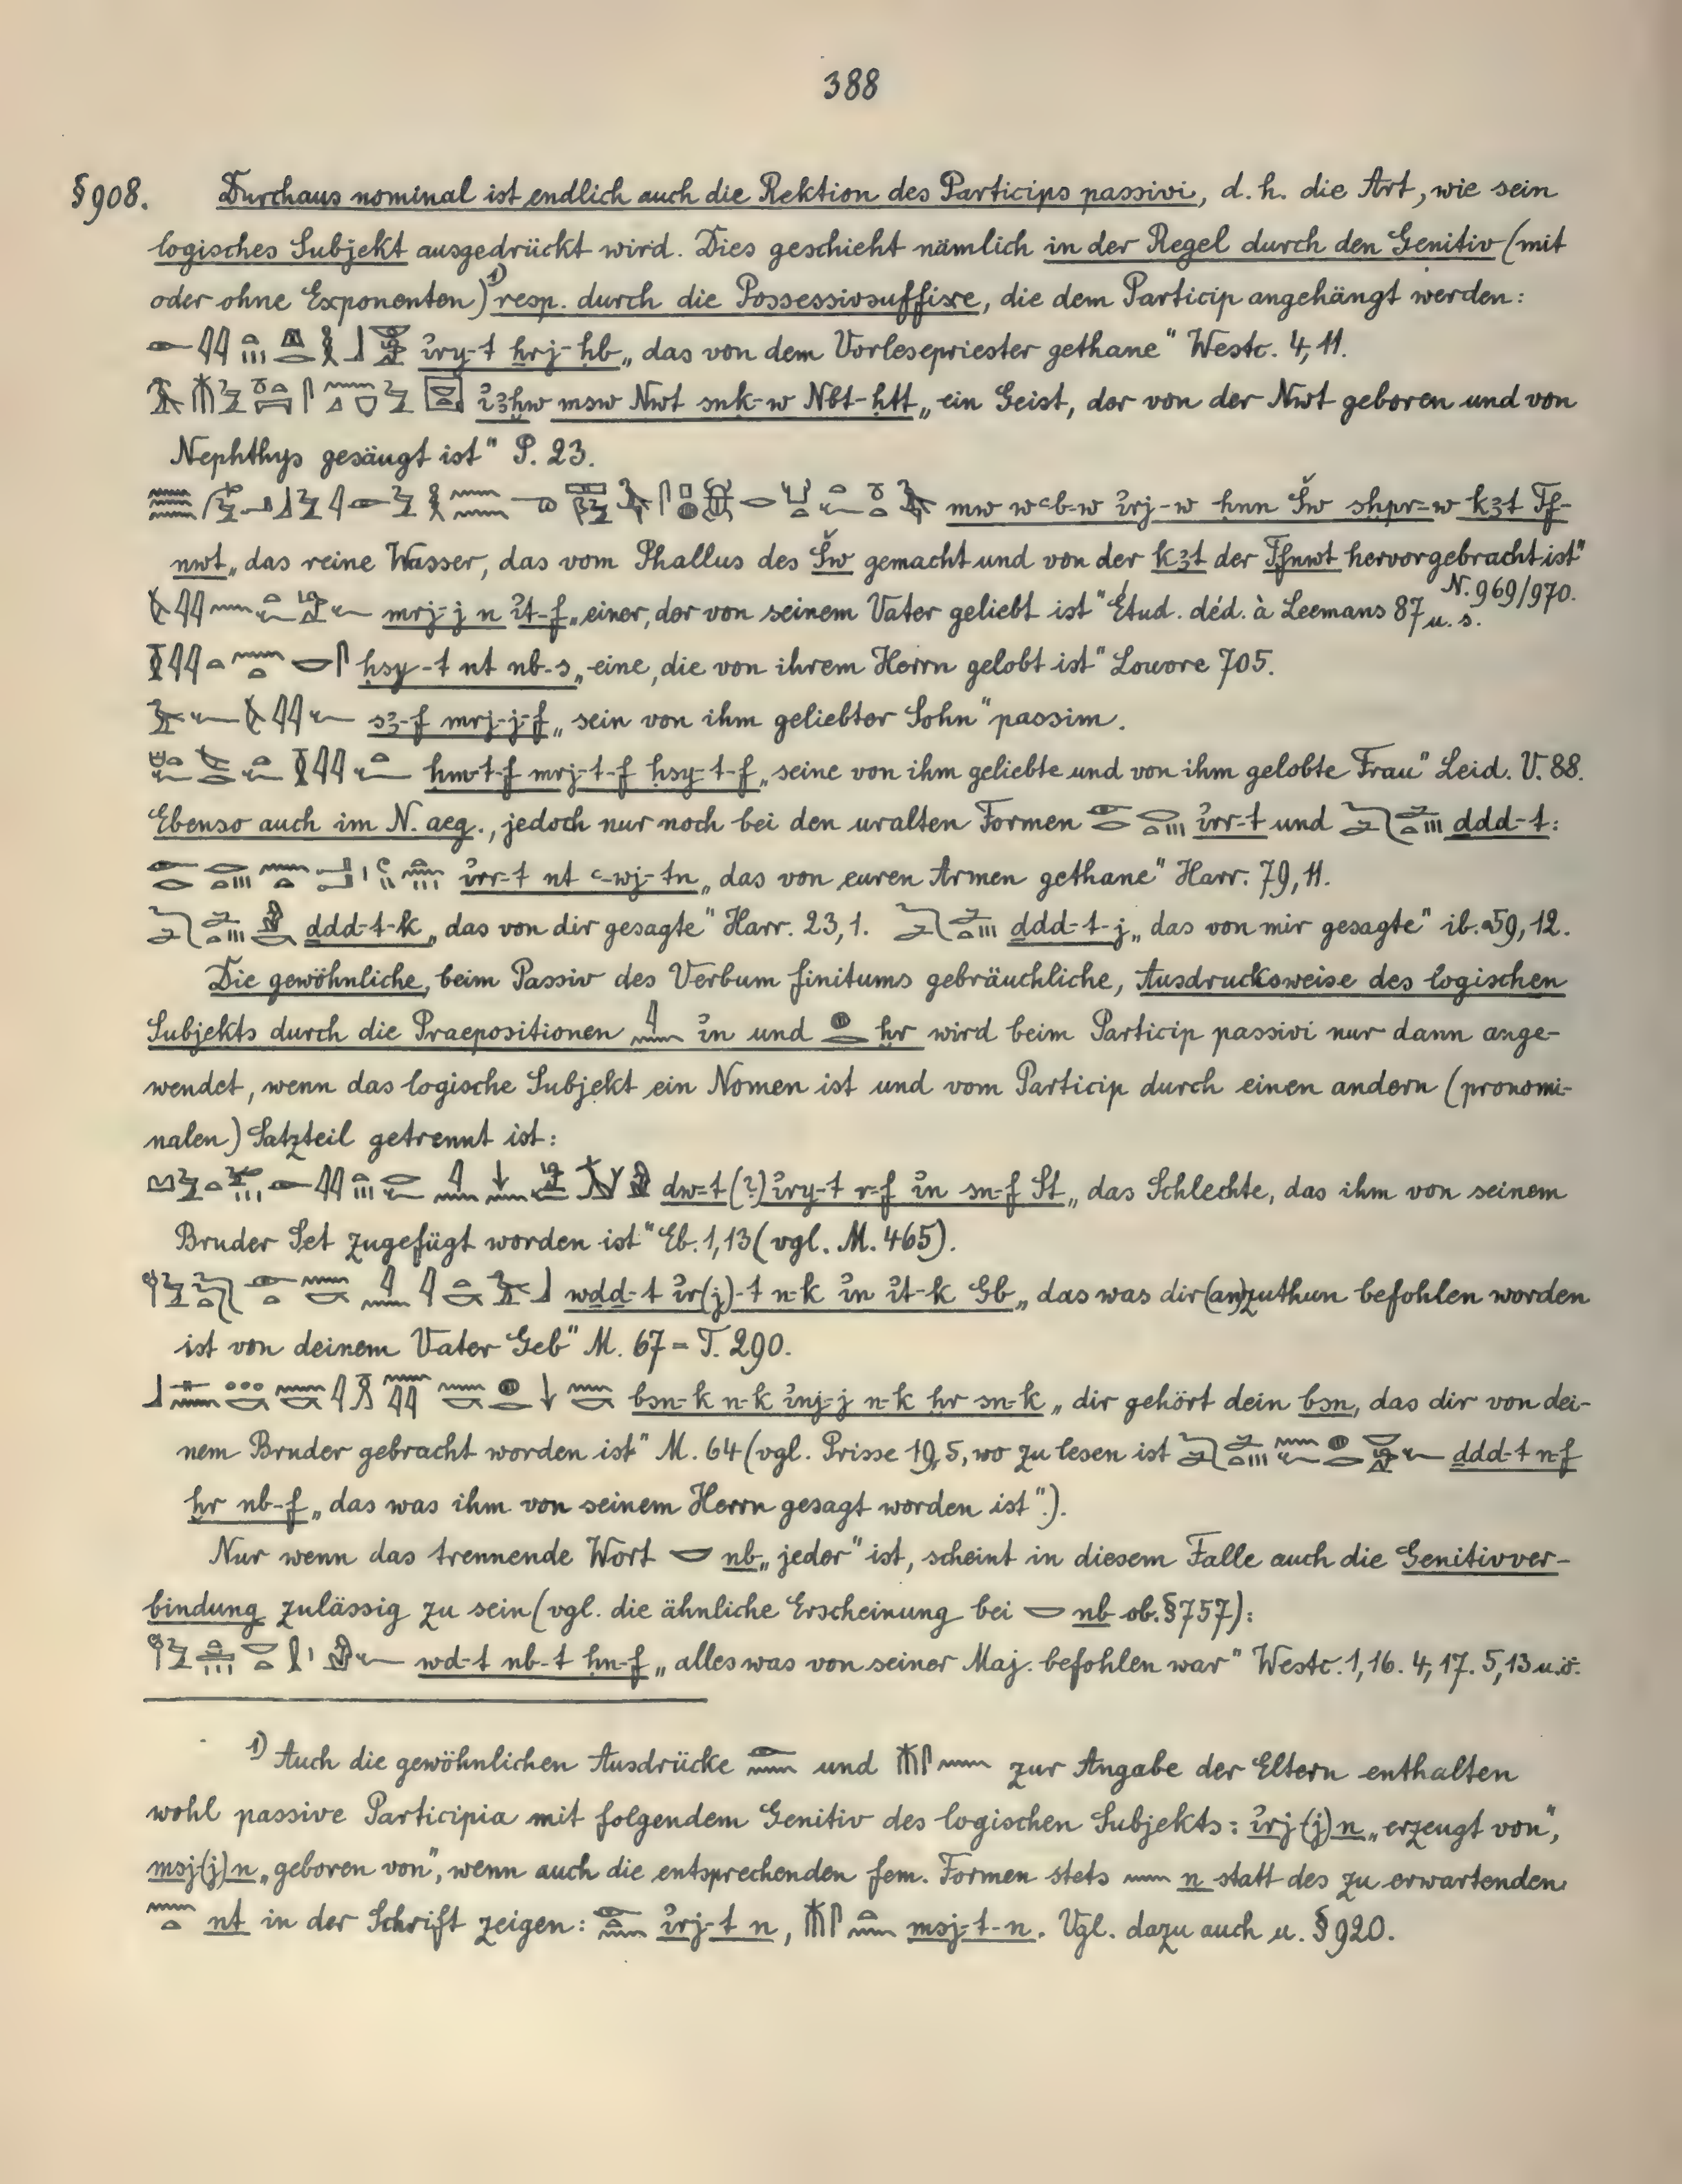 388
§908. Durchaus nominal ist endlich auch die Rektion des Particips passivi, d. h. die Art, wie sein
logisches Subjekt ausgedrückt wird. Dies geschieht nämlich in der Regel durch den Genitiv (mit
oder ohne Exponenten)¹⁾ resp. durch die Possessivsuffixe, die dem Particip angehängt werden:
ỉry-t ẖrj-ḥb „das von dem Vorlesepriester gethane" Westc. 4,11.
ỉꜣḫw msw Nwt snḳ-w Nbt-ḥtt „ein Geist, der von der Nwt geboren und von
Nephthys gesäugt ist" P. 23.
mw wꜥb-w ỉrj-w ḥnn Šw sḫpr-w kꜣt Tf-
nwt „das reine Wasser, das vom Phallus des Šw gemacht und von der kꜣt der Tfnwt hervorgebracht ist"
N. 969/970.
mrj-j n ỉt-f „einer, der von seinem Vater geliebt ist" Étud. déd. à Leemans 87 u. s.
ḥsy-t nt nb-s „eine, die von ihrem Herrn gelobt ist" Louvre 705.
sꜣ-f mrj-j-f „sein von ihm geliebter Sohn" passim.
ḥm-t-f mrj-t-f ḥsy-t-f „seine von ihm geliebte und von ihm gelobte Frau" Leid. V. 88.
Ebenso auch im N. aeg., jedoch nur noch bei den uralten Formen ỉrr-t und ḏdd-t:
ỉrr-t nt ꜥ-wj-tn „das von euren Armen gethane" Harr. 79,11.
ḏdd-t-k „das von dir gesagte" Harr. 23,1. ḏdd-t-j „das von mir gesagte" ib. 59,12.
Die gewöhnliche, beim Passiv des Verbum finitums gebräuchliche, Ausdrucksweise des logischen
Subjekts durch die Praepositionen ỉn und ḫr wird beim Particip passivi nur dann ange-
wendet, wenn das logische Subjekt ein Nomen ist und vom Particip durch einen andern (pronomi-
nalen) Satzteil getrennt ist:
ḏw-t (?) ỉry-t r-f ỉn sn-f St „das Schlechte, das ihm von seinem
Bruder Set zugefügt worden ist" Eb. 1,13 (vgl. M. 465).
wḏd-t ỉr(j)-t n-k ỉn ỉt-k Gb „das was dir (an)zuthun befohlen worden
ist von deinem Vater Geb" M. 67 = T. 290.
bsn-k n-k ỉnj-j n-k ḫr sn-k „dir gehört dein bsn, das dir von dei-
nem Bruder gebracht worden ist" M. 64 (vgl. Prisse 19,5, wo zu lesen ist ḏdd-t n-f
ḫr nb-f „das was ihm von seinem Herrn gesagt worden ist".).
Nur wenn das trennende Wort nb „jeder" ist, scheint in diesem Falle auch die Genitivver-
bindung zulässig zu sein (vgl. die ähnliche Erscheinung bei nb ob. §757):
wḏ-t nb-t ḥn-f „alles was von seiner Maj. befohlen war" Westc. 1,16. 4,17. 5,13 u.ö.
¹⁾ Auch die gewöhnlichen Ausdrücke und zur Angabe der Eltern enthalten
wohl passive Participia mit folgendem Genitiv des logischen Subjekts: ỉrj(j) n „erzeugt von",
msj(j) n „geboren von", wenn auch die entsprechenden fem. Formen stets n statt des zu erwartenden
nt in der Schrift zeigen: ỉrj-t n, msj-t-n. Vgl. dazu auch u. §920.